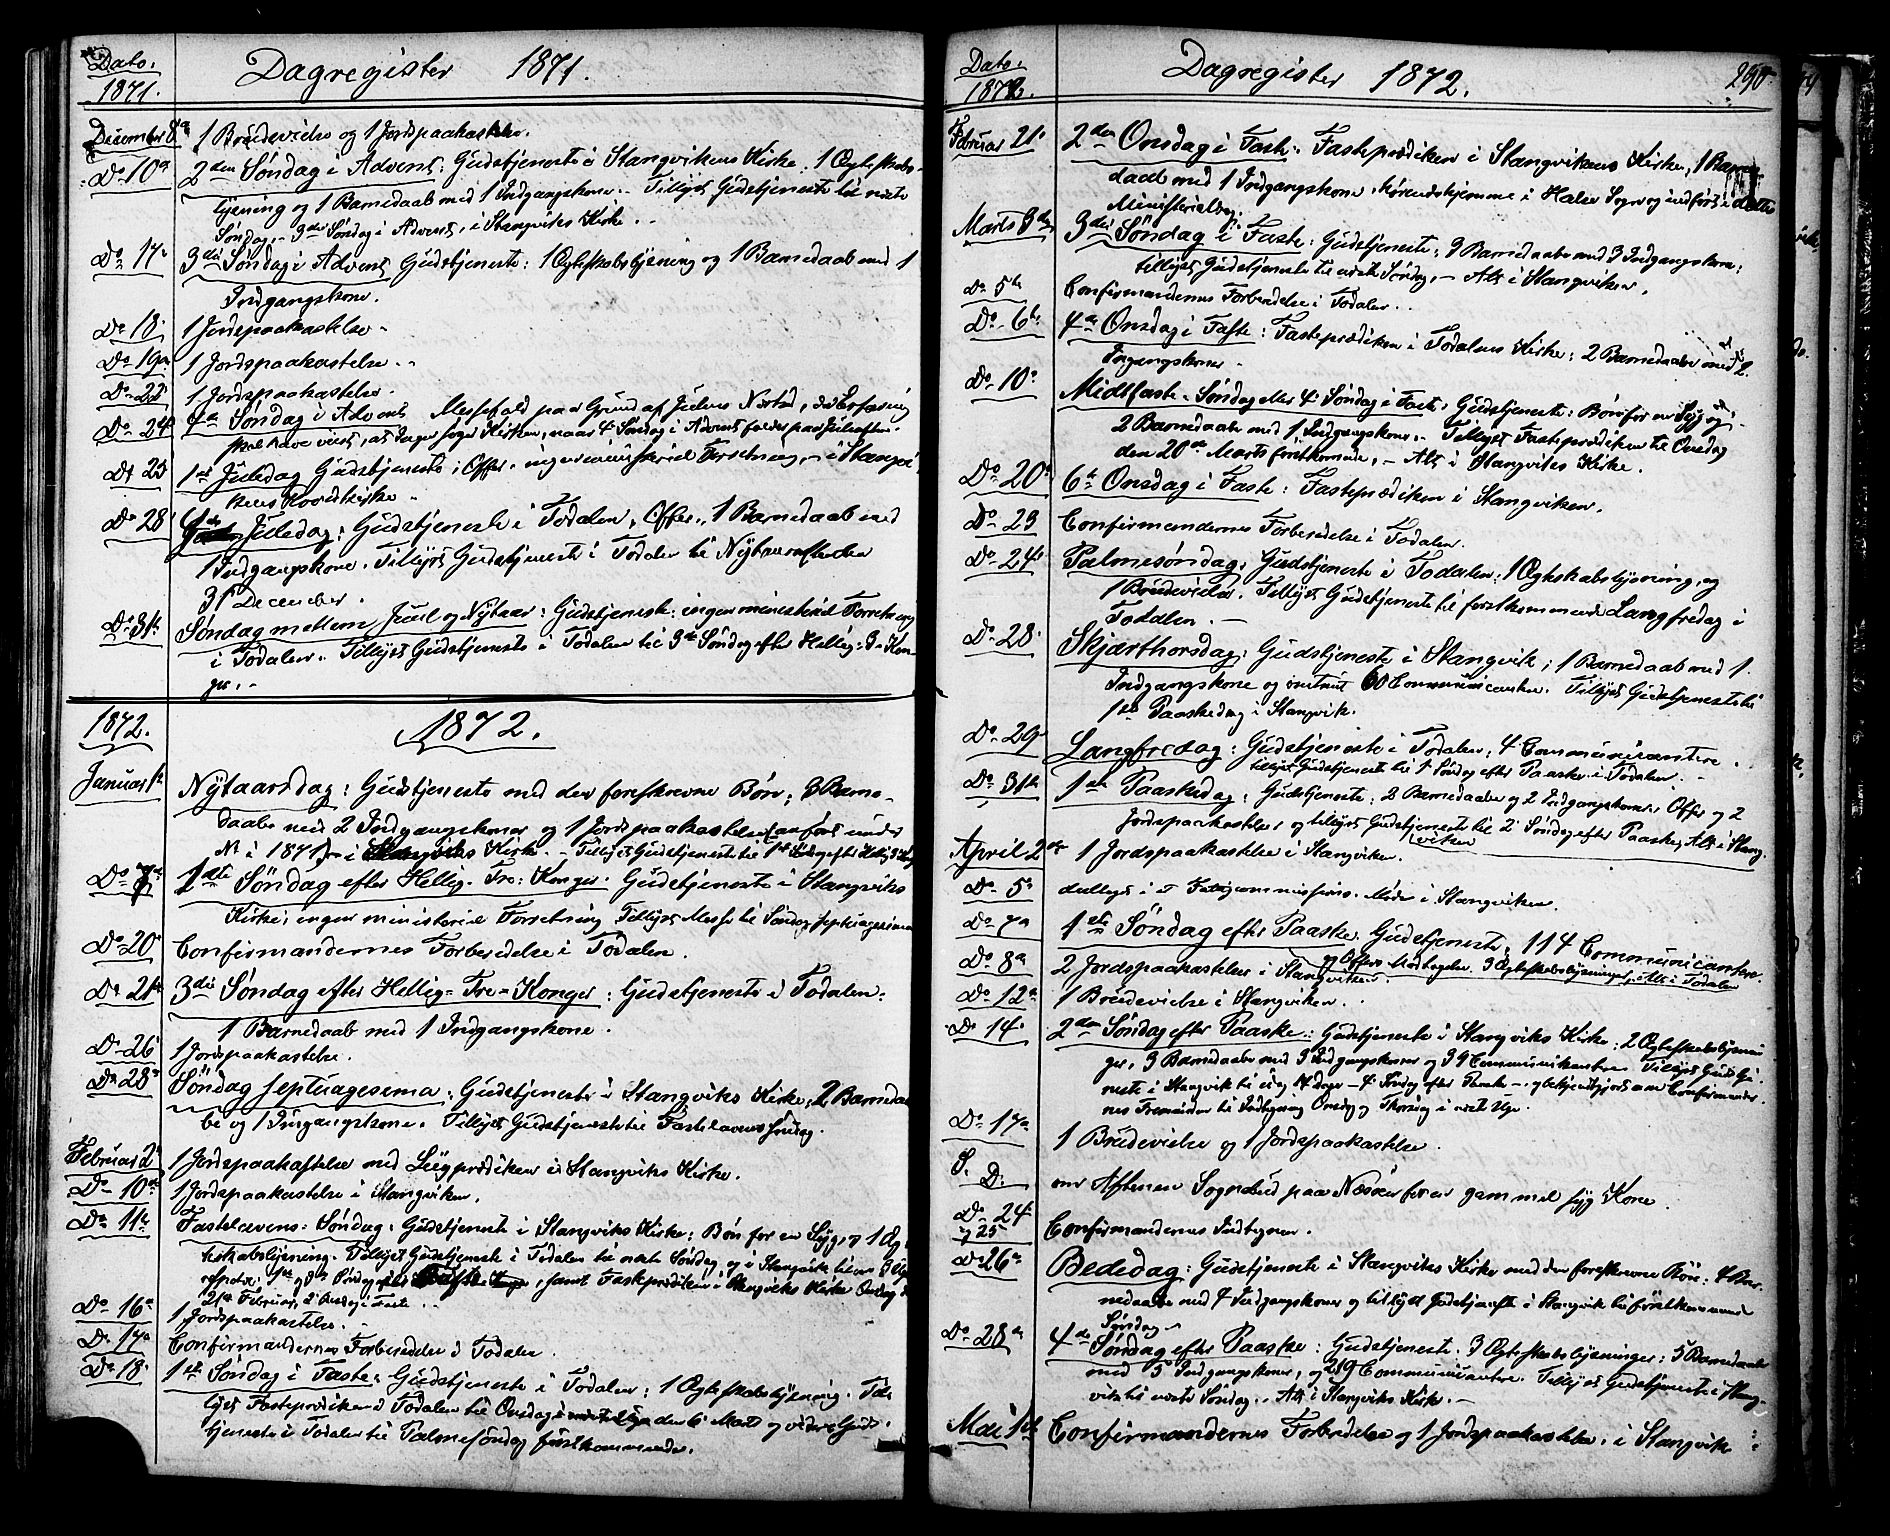 Dato.
1871.
Dagregister 1871.
December 8de 1 Brudevielse og 1 Jordspaakastelse.
Do 10de 2den Søndag i Advent: Gudstjeneste i Stangvikens Kirke: 1 Ægteskabs-
lysning og 1 Barnedaab med 1 Indgangskone. Tillyst Gudstjeneste til næste
Søndag, 3die Søndag i Advent, i Stangviks Kirke.
Do 17de 3die Søndag i Advent Gudstjeneste: 1 Ægteskabslysning og 1 Barnedaab med 1
Indgangskone.
Do 18. 1 Jordspaakastelse.
Do 19de 1 Jordspaakastelse.
Do 22 1 Jordspaakastelse.
Do 24 4de Søndag i Advent Messefald paa Grund af Julens Nærhed, da Erfaring
skal have viist, at Ingen søger Kirken, naar 4de Søndag i Advent falder paa Juleaften.
Do 25 1ste Juledag Gudstjeneste; Offer, ingen ministeriel Forretning, i Stangvi-
kens Hovedkirke.
Do 28 4de Juledag: Gudstjeneste i Todalen, Offer, 1 Barnedaab med
1 Indgangskone. Tillyst Gudstjeneste i Todalen til Nytaarsaften den
31te December.
Do 31te Søndag mellem Juul og Nytaar: Gudstjeneste: ingen ministeriel Forretning
i Todalen. Tillyst Gudstjeneste i Todalen til 3die Søndag efter Hellig-3-Kon-
ger.
1872. 1872.
Januar 1ste Nytaarsdag: Gudstjeneste med den foreskrevne Bøn; 3 Barne-
daabe med 2 Indgangskoner og 1 Jordspaakastelse (anført under
N i 1871) i Stangviks Kirke. Tillyst Gudstjeneste til 1ste Søndag efter Hellig 3 Konger
Do 7de 1ste Søndag efter Hellig-Tre-Konger. Gudstjeneste i Stangviks
Kirke, ingen ministeriel Forretning Tillyst Messe til Søndag septuagesima
Do 20de Confirmandernes Forberedelse i Todalen.
Do 21de 3die Søndag efter Hellig-Tre-Konger: Gudstjeneste i Todalen:
1 Barnedaab med 1 Indgangskone.
Do 26 1 Jordspaakastelse.
Do 28de Søndag septuagesima: Gudstjeneste i Stangviks Kirke, 2 Barnedaa-
be og 1 Indgangskone. Tillyst Gudstjeneste til Fastelavens Søndag.
Februar 2 1 Jordspaakastelse med Liigprædiken i Stangviks Kirke.
Do 10de 1 Jordspaakastelse i Stangviken.
Do 11te Fastelavens-Søndag: Gudstjeneste i Stangviks Kirke: Bøn for en Syg, og 1 Æg-
teskabslysning. Tillyst Gudstjeneste i Todalen til næste Søndag, og i Stangvik til om 3 Uger
Søndag i Faste, samt Fasteprædiken i Stangviks Kirke Onsdag d.
21de Februar, 2 Onsdag i Faste.
Do 16de 1 Jordspaakastelse.
Do 17de Confirmandernes Forberedelse i Todalen.
Do 18. 1ste Søndag i Faste: Gudstjeneste i Todalen; 1 Ægteskabslysning. Til-
lyst Fasteprædiken i Todalen til Onsdag den 6te Marts og videre Guds-
tjeneste i Todalen til Palmesøndag førstkommende.
Dato.
1872.
Dagregister 1872. 250.
Februar 21. 2den Onsdag i Faste: Fasteprædiken i Stangvikens Kirke, 1 Barne-
daab med 1 Indgangskone, hørende hjemme i Halse Sogn og indført i dette
Ministerialbog.
Marts 3die 3die Søndag i Faste: Gudstjeneste; 3 Barnedaabe med 3 Indgangskoner;
tillyst Gudstjeneste til næste Søndag. Alt i Stangviken.
Do 5te Confirmandernes Forberedelse i Todalen.
Do 6te 4de Onsdag i Faste: Fasteprædiken i Todalens Kirke: 2 Barnedaabe med 2
Ingangskoner.
Do 10de Midtfaste-Søndag eller 4de Søndag i Faste: Gudstjeneste: Bøn for en Syg og
2 Barnedaabe med 1 Indgangskone. Tillyst Fasteprædiken til Onsdag
den 20de Marts førstkommende. Alt i Stangviks Kirke.
Do 20de 6te Onsdag i Faste: Fasteprædiken i Stangviken.
Do 23 Confirmandernes Forberedelse i Todalen.
Do 24de Palmesøndag: Gudstjeneste i Todalen: 1 Ægteskabslysning, og
1 Brudevielse. Tillyst Gudstjeneste til førstkommende Langfredag i
Todalen.
Do 28. Skjærthorsdag: Gudstjeneste i Stangvik; 1 Barnedaab med 1
Indgangskone og omtrent 60 Communicanter. Tillyst Gudstjeneste til
1ste Paaskedag i Stangvik.
Do 29 Langfredag: Gudstjeneste i Todalen, 4 Communicantere.
tillyst Gudstjeneste til 1 Søndag efter Paaske i Todalen.
Do 31te 1ste Paaskedag: Gudstjeneste: 2 Barnedaabe og 2 Indgangskoner, Offer og 2
Jordspaakastelser og tillyst Gudstjeneste til 2 Søndag efter Paaske, Alt i Stang-
viken
April 2den 1 Jordspaakastelse i Stangviken.
Do 5te deeltaget i Fattigcommissions-Møde i Stangviken.
Do 7de 1ste Søndag efter Paaske. Gudstjeneste, 114 Communicantere
og Offers Modtagelse. 3 Ægteskabslysninger, Alt i Todalen
Do 8de 2 Jordspaakastelser i Stangviken.
Do 12te 1 Brudevielse i Stangviken.
Do 14. 2den Søndag efter Paaske: Gudstjeneste i Stangviks Kirke: 2 Ægteskabslysnin-
ger, 3 Barnedaabe med 3 Indgangskoner og 39 Communikantere Tillyst Gudstje-
neste i Stangvik til om 14 dage - 4de Søndag efter Paaske - og bekjendtgjort om Confirmander-
nes Fremmøde til Indtegning Onsdag og Thorsdag i næste Uge.
Do 17de 1 Brudevielse og 1 Jordspaakastelse.
S. D. om Aftenen Sognebud paa Næsset for en gammel syg Kone.
Do 24
og 25 Confirmandernes Indtegnen.
Do 26de Bededag: Gudstjeneste i Stangviks Kirke med den foreskrevne Bøn: 4 Bar-
nedaabe med 4 Indgangskoner og tillyst Gudstjeneste i Stangvik til førstkommende
Søndag
Do 28de 4de Søndag efter Paaske: Gudstjeneste: 3 Ægteskabslysninger: 5 Barnedaabe
med 5 Indgangskoner, og 29 Communicantere. Tillyst Gudstjeneste i Stang-
vik til næste Søndag. Alt i Stangviks Kirke.
Mai 1ste Confirmandernes Forberedelse og 1 Jordspaakastelse. i Stangvik